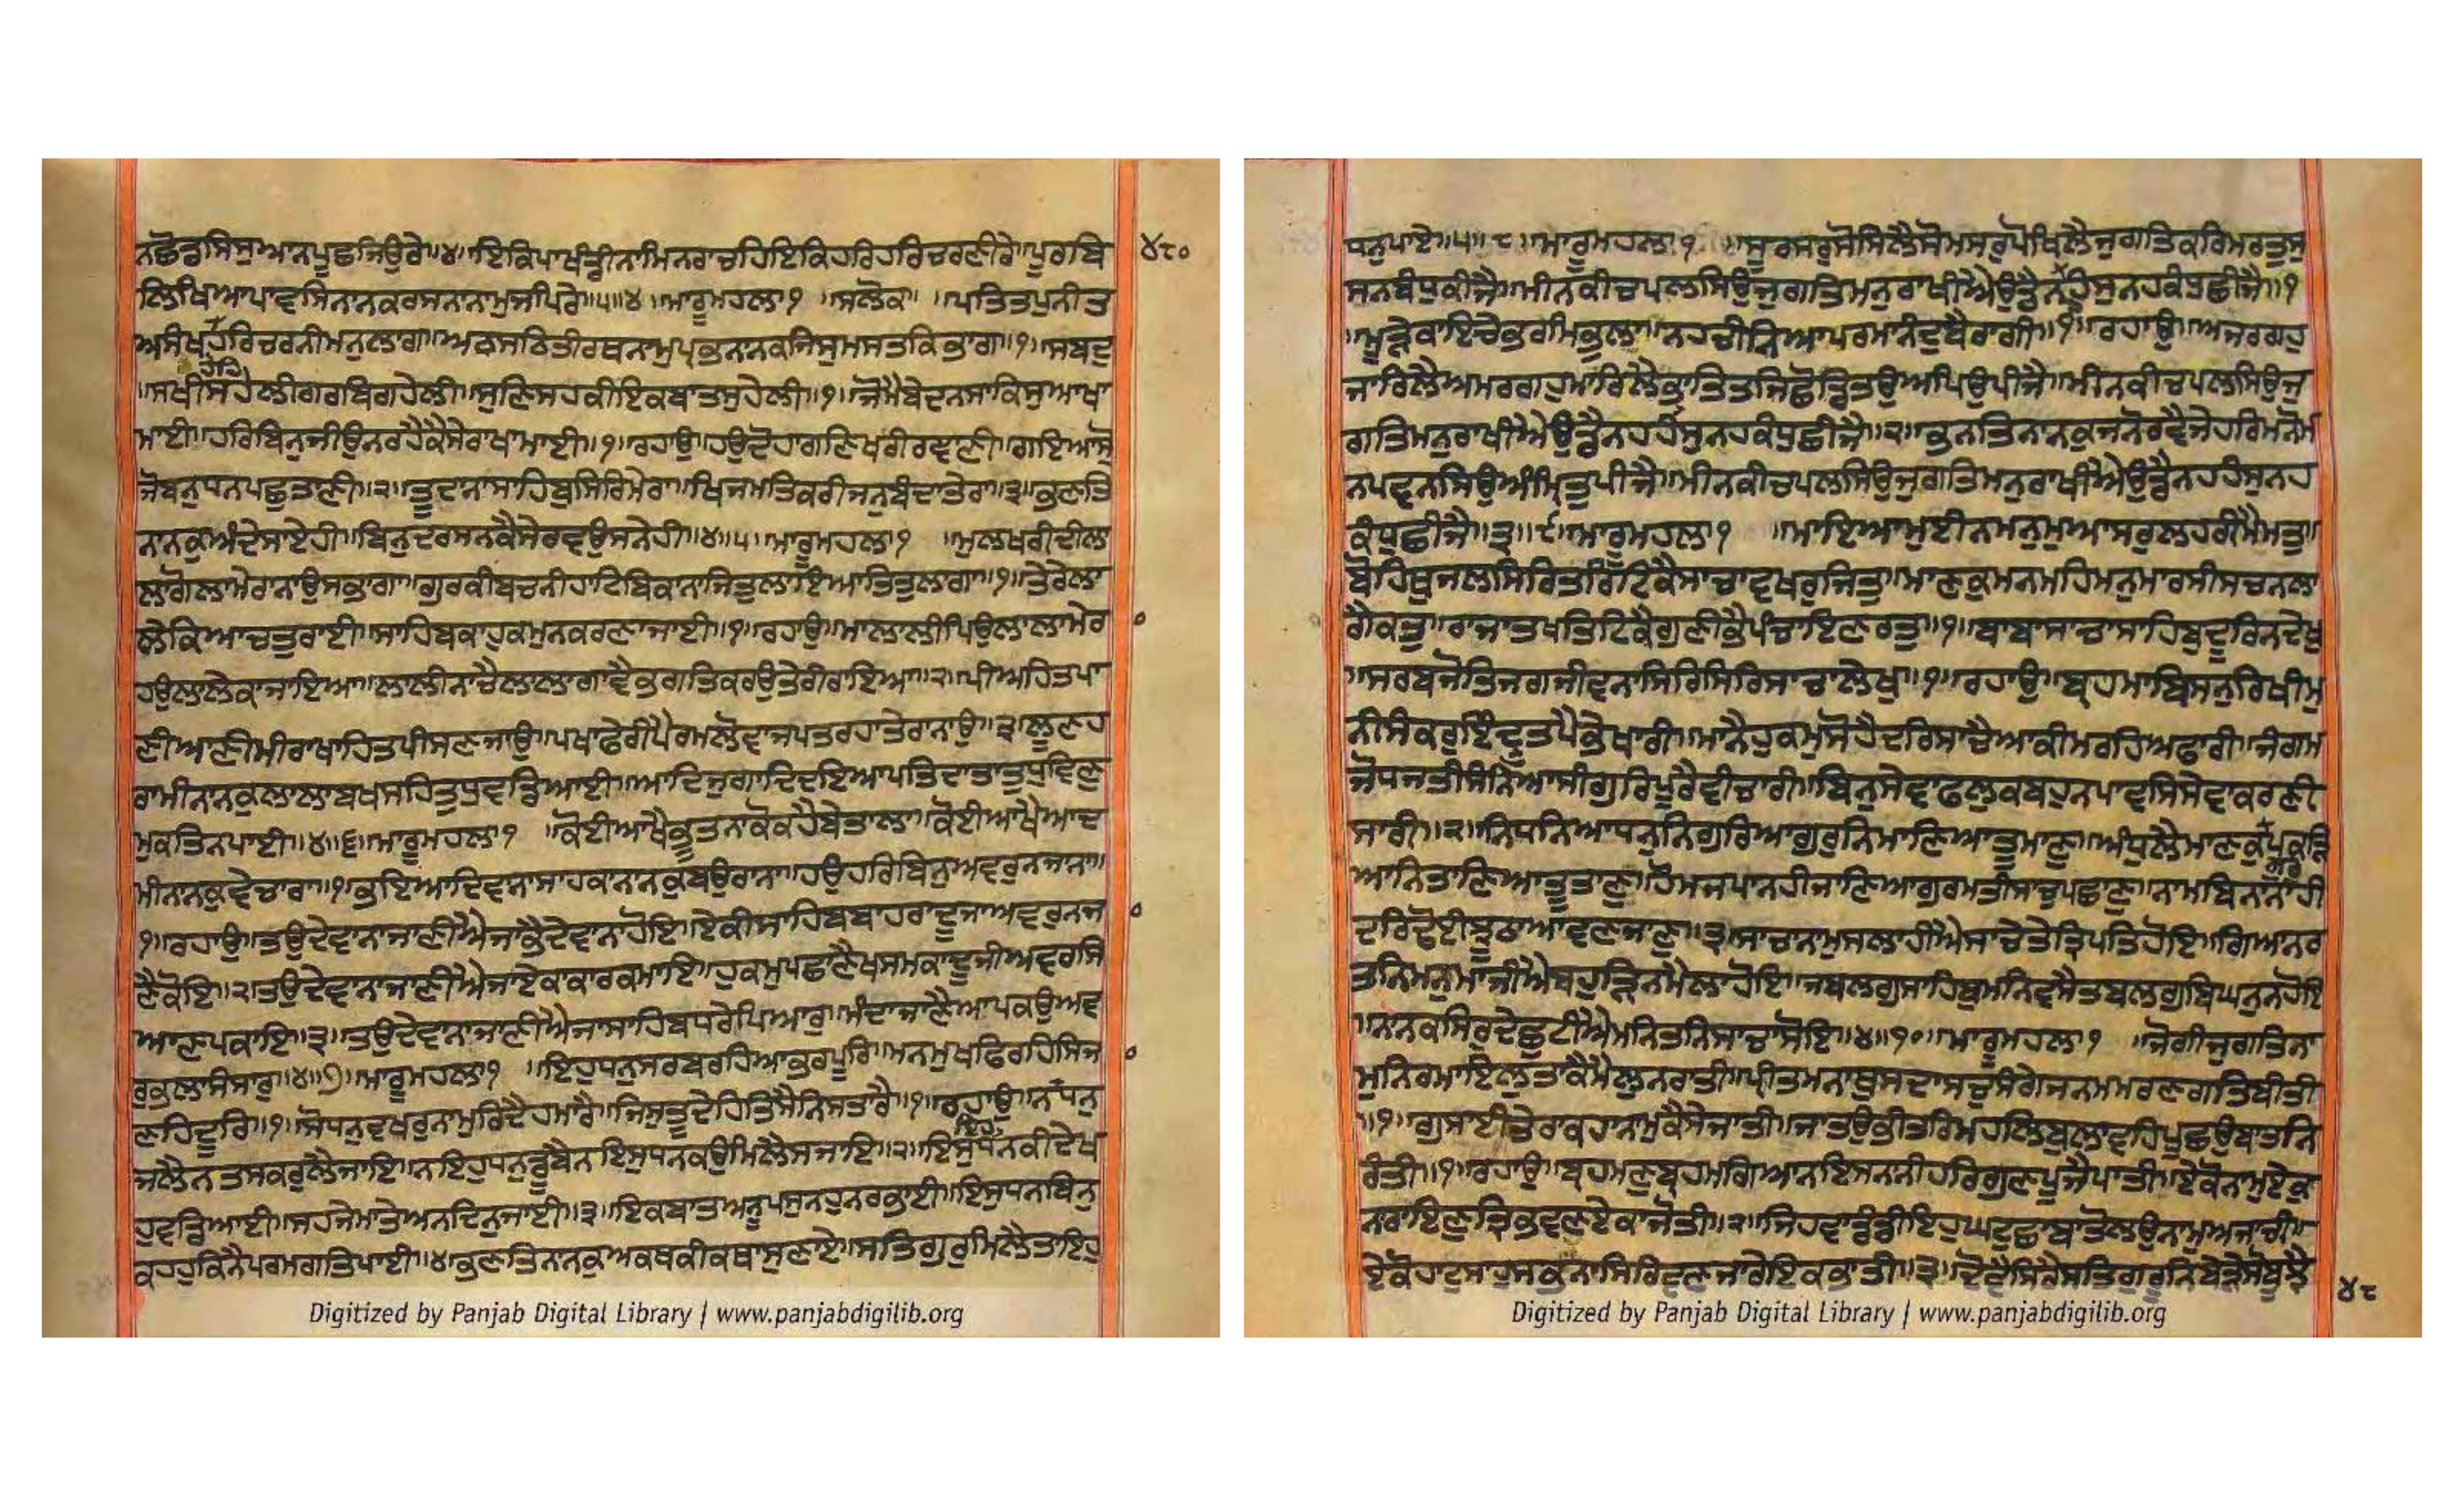 ਨਛੋਡਸਿਸੁਆਨਪੂਛਜਿਉਰੇ॥੪॥ਇਕਿਪਾਖੰਡੀਨਾਮਿਨਰਾਚਹਿਇਕਿਹਰਿਹਰਿਚਰਣੀਰੇ॥ਪੂਰਬਿ
੪੮੦
ਲਿਖਿਆਪਾਵਸਿਨਾਨਕਰਸਨਾਨਾਮੁਜਪਿਰੇ॥੫॥੪॥ਮਾਰੂਮਹਲਾ੧ ॥ਸਲੋਕ॥ ॥ਪਤਿਤਪੁਨੀਤ
ਅਸੰਖਹਰਿਚਰਨੀਮਨੁਲਾਗ॥ਅਠਸਠਿਤੀਰਥਨਾਮੁਪ੍ਰਭਨਾਨਕਜਿਸੁਮਸਤਕਿਭਾਗ॥੧॥ਸਬਦੁ
॥ਸਖੀਸਹੇਲੀਗਰਬਿਗਹੇਲੀ॥ਸੁਣਿਸਹਕੀਇਕਬਾਤਸੁਹੇਲੀ॥੧॥ਜੋਮੈਬੇਦਨਸਾਕਿਸੁਆਖਾ
ਮਾਈ॥ਹਰਿਬਿਨੁਜੀਉਨਰਹੈਕੈਸੇਰਾਖਾਮਾਈ॥੧॥ਰਹਾਉ॥ਹਉਦੋਹਾਗਣਿਖਰੀਰਞਾਣੀ॥ਗਇਆਸੋ
ਜੋਬਨੁਧਨਪਛੁਤਾਣੀ॥੨॥ਤੂਦਾਨਾਸਾਹਿਬੁਸਿਰਿਮੇਰਾ॥ਖਿਜਮਤਿਕਰੀਜਨੁਬੰਦਾਤੇਰਾ॥੩॥ਭਣਤਿ
ਨਾਨਕੁਅੰਦੇਸਾਏਹੀ॥ਬਿਨੁਦਰਸਨਕੈਸੇਰਵਉਸਨੇਹੀ॥੪॥੫॥ਮਾਰੂਮਹਲਾ੧ ॥ਮੁਲਖਰੀਦੀਲਾ
ਲਾਗੋਲਾਮੇਰਾਨਾਉਸਭਾਗਾ॥ਗੁਰਕੀਬਚਨੀਹਾਟਿਬਿਕਾਨਾਜਿਤੁਲਾਇਆਤਿਤੁਲਾਗਾ॥੧॥ਤੇਰੇਲਾ
ਲੇਕਿਆਚਤੁਰਾਈ॥ਸਾਹਿਬਕਾਹੁਕਮੁਨਕਰਣਾਜਾਈ॥੧॥ਰਹਾਉ॥ਮਾਲਾਲੀਪਿਉਲਾਲਾਮੇਰ
ਹਉਲਾਲੇਕਾਜਾਇਆ॥ਲਾਲੀਨਾਚੈਲਾਲਾਗਾਵੈਭਗਤਿਕਰਉਤੇਰੀਰਾਇਆ॥੨॥ਪੀਅਹਿਤਪਾ
ਣੀਆਣੀਮੀਰਾਖਾਹਿਤਪੀਸਣਜਾਉ॥ਪਖਾਫੇਰੀਪੈਰਮਲੋਵਾਜਪਤਰਹਾਤੇਰਾਨਾਉ॥੩॥ਲੂਣਹ
ਰਾਮੀਨਾਨਕੁਲਾਲਾਬਖਸਹਿਤੁਧੁਵਡਿਆਈ॥ਆਦਿਜੁਗਾਦਿਦਇਆਪਤਿਦਾਤਾਤੁਧੁਵਿਣੁ
ਮੁਕਤਿਨਪਾਈ॥੪॥੬॥ਮਾਰੂਮਹਲਾ੧ ॥ਕੋਈਆਖੈਭੂਤਨਾਕੋਕਹੈਬੇਤਾਲਾ॥ਕੋਈਆਖੇਆਦ
ਮੀਨਾਨਕੁਵੇਚਾਰਾ॥੧॥ਭਇਆਦਿਵਾਨਾਸਾਹਕਾਨਾਨਕੁਬਉਰਾਨਾ॥ਹਉਹਰਿਬਿਨੁਅਵਰੁਨਜਾਨਾ॥
੧॥ਰਹਾਉ॥ਤਉਦੇਵਾਨਾਜਾਣੀਐਜਾਭੈਦੇਵਾਨਾਹੋਇ॥ਏਕੀਸਾਹਿਬਬਾਹਰਾਦੂਜਾਅਵਰੁਨਜ
ਣੈਕੋਇ॥੨॥ਤਉਦੇਵਾਨਾਜਾਣੀਐਜਾਏਕਾਕਾਰਕਮਾਇ॥ਹੁਕਮੁਪਛਾਣੈਖਸਮਕਾਦੂਜੀਅਵਰਸਿ
ਆਣਪਕਾਇ॥੩॥ਤਉਦੇਵਾਨਾਜਾਣੀਐਜਾਸਾਹਿਬਧਰੇਪਿਆਰੁ॥ਮੰਦਾਜਾਣੈਆਪਕਉਅਵ
ਰੁਭਲਾਸੰਸਾਰੁ॥੪॥੭॥ਮਾਰੂਮਹਲਾ੧ ॥ਇਹੁਧਨੁਸਰਬਰਹਿਆਭਰਪੂਰਿ॥ਮਨਮੁਖਫਿਰਹਿਸਿਜ
ਣਹਿਦੂਰਿ॥੧॥ਸੋਧਨੁਵਖਰੁਨਾਮੁਰਿਦੈਹਮਾਰੈ॥ਜਿਸੁਤੂਦੇਹਿਤਿਸੈਨਿਸਤਾਰੈ॥੧॥ਰਹਾਉ॥ਨਧਨੁ
ਜਲੈਨਤਸਕਰੁਲੈਜਾਇ॥ਨਇਹੁਧਨੁਡੂਬੈਨਇਸੁਧਨਕਉਮਿਲੈਸਜਾਇ॥੨॥ਇਸੁਧਨਕੀਦੇਖ
ਹੁਵਡਿਆਈ॥ਸਹਜੇਮਾਤੇਅਨਦਿਨੁਜਾਈ॥੩॥ਇਕਬਾਤਅਨੂਪਸੁਨਹੁਨਰਭਾਈ॥ਇਸੁਧਨਬਿਨੁ
ਕਹਹੁਕਿਨੈਪਰਮਗਤਿਪਾਈ॥੪॥ਭਣਤਿਨਾਨਕੁਅਕਥਕੀਕਥਾਸੁਣਾਏ॥ਸਤਿਗੁਰੁਮਿਲੈਤਾਇਹੁ
Digitized by Panjab Digital Library | www.panjabdigilib.org
ਧਨੁਪਾਏ॥੫॥੮॥ਮਾਰੂਮਹਲਾ੧ ॥ਸੂਰਸਰੁਸੋਸਿਲੈਸੋਮਸਰੁਪੋਖਿਲੈਜੁਗਤਿਕਰਿਮਰਤੁਸੁ
ਸਨਬੰਧੁਕੀਜੈ॥ਮੀਨਕੀਚਪਲਸਿਉਜੁਗਤਿਮਨੁਰਾਖੀਐਉਡੈਨਹੰਸੁਨਹਕੰਧੁਛੀਜੈ॥੧
॥ਮੂੜੇਕਾਇਚੇਭਰਮਿਭੁਲਾ॥ਨਹਚੀਨਿਆਪਰਮਾਨੰਦੁਬੈਰਾਗੀ॥੧॥ਰਹਾਉ॥ਅਜਰਗਹੁ
ਜਾਰਿਲੈਅਮਰਗਹੁਮਾਰਿਲੈਭ੍ਰਾਤਿਤਜਿਛੋਡਿਤਉਅਪਿਉਪੀਜੈ॥ਮੀਨਕੀਚਪਲਸਿਉਜੁ
ਗਤਿਮਨੁਰਾਖੀਐਉਡੈਨਹਹੰਸੁਨਹਕੰਧੁਛੀਜੈ॥੨॥ਭਨਤਿਨਾਨਕੁਜਨੋਰਵੈਜੇਹਰਿਮਨੋਮ
ਨਪਵਨਸਿਉਅੰਮ੍ਰਿਤੁਪੀਜੈ॥ਮੀਨਕੀਚਪਲਸਿਉਜੁਗਤਿਮਨੁਰਾਖੀਐਉਡੈਨਹਹੰਸੁਨਹ
ਕੰਧੁਛੀਜੈ॥੩॥੯॥ਮਾਰੂਮਹਲਾ੧ ॥ਮਾਇਆਮੁਈਨਮਨੁਮੁਆਸਰੁਲਹਰੀਮੈਮਤੁ॥
ਬੋਹਿਥੁਜਲਸਿਰਿਤਰਿਟਿਕੈਸਾਚਾਵਖਰੁਜਿਤੁ॥ਮਾਣਕੁਮਨਮਹਿਮਨੁਮਾਰਸੀਸਚਨਲਾ
ਗੈਕਤੁ॥ਰਾਜਾਤਖਤਿਟਿਕੈਗੁਣੀਭੈਪੰਚਾਇਣਰਤੁ॥੧॥ਬਾਬਾਸਾਚਾਸਾਹਿਬੁਦੂਰਿਨਦੇਖੁ
॥ਸਰਬਜੋਤਿਜਗਜੀਵਨਾਸਿਰਿਸਿਰਿਸਾਚਾਲੇਖੁ॥੧॥ਰਹਾਉ॥ਬ੍ਰਹਮਾਬਿਸਨੁਰਿਖੀਮੁ
ਨੀਸੰਕਰੁਇੰਦੁਤਪੈਭੇਖਾਰੀ॥ਮਾਨੈਹੁਕਮੁਸੋਹੈਦਰਿਸਾਚੈਆਕੀਮਰਹਿਅਫਾਰੀ॥ਜੰਗਮ
ਜੋਧਜਤੀਸੰਨਿਆਸੀਗੁਰਿਪੂਰੈਵੀਚਾਰੀ॥ਬਿਨੁਸੇਵਾਫਲੁਕਬਹੁਨਪਾਵਸਿਸੇਵਾਕਰਣੀ
ਸਾਰੀ॥੨॥ਨਿਧਨਿਆਧਨੁਨਿਗੁਰਿਆਗੁਰੁਨਿਮਾਣਿਆਤੂਮਾਣੁ॥ਅੰਧੁਲੈਮਾਣਕੁਗੁਰੁਪਕੜਿ
ਆਨਿਤਾਣਿਆਤੂਤਾਣੁ॥ਹੋਮਜਪਾਨਹੀਜਾਣਿਆਗੁਰਮਤੀਸਾਚੁਪਛਾਣੁ॥ਨਾਮਬਿਨਾਨਾਹੀ
ਦਰਿਢੋਈਝੂਠਾਆਵਣਜਾਣੁ॥੩॥ਸਾਚਾਨਾਮੁਸਲਾਹੀਐਸਾਚੇਤੇਤ੍ਰਿਪਤਿਹੋਇ॥ਗਿਆਨਰ
ਤਨਿਮਨੁਮਾਜੀਐਬਹੁੜਿਨਮੈਲਾਹੋਇ॥ਜਬਲਗੁਸਾਹਿਬੁਮਨਿਵਸੈਤਬਲਗੁਬਿਘਨੁਨਹੋਇ
॥ਨਾਨਕਸਿਰੁਦੇਛੁਟੀਐਮਨਿਤਨਿਸਾਚਾਸੋਇ॥੪॥੧੦॥ਮਾਰੂਮਹਲਾ੧ ॥ਜੋਗੀਜੁਗਤਿਨਾ
ਮੁਨਿਰਮਾਇਲੁਤਾਕੈਮੈਲੁਨਰਾਤੀ॥ਪ੍ਰੀਤਮਨਾਥੁਸਦਾਸਚੁਸੰਗੇਜਨਮਮਰਣਗਤਿਬੀਤੀ
॥੧॥ਗੁਸਾਈਤੇਰਾਕਹਾਨਾਮੁਕੈਸੇਜਾਤੀ॥ਜਾਤਉਭੀਤਰਿਮਹਲਿਬੁਲਾਵਹਿਪੂਛਉਬਾਤਨਿ
ਰੰਤੀ॥੧॥ਰਹਾਉ॥ਬ੍ਰਹਮਣੁਬ੍ਰਹਮਗਿਆਨਇਸਨਾਨੀਹਰਿਗੁਣਪੂਜੈਪਾਤੀ॥ਏਕੋਨਾਮੁਏਕੁ
ਨਰਾਇਣੁਤ੍ਰਿਭਵਣਏਕਾਜੋਤੀ॥੨॥ਜਿਹਵਾਡੰਡੀਇਹੁਘਟੁਛਾਬਾਤੋਲਉਨਾਮੁਅਜਾਚੀ॥
ਏਕੋਹਾਟੁਸਾਹੁਸਭਨਾਸਿਰਿਵਣਜਾਰੇਇਕਭਾਤੀ॥੩॥ਦੋਵੈਸਿਰੈਸਤਿਗੁਰੂਨਿਬੇੜੇਸੋਬੂਝੈ
੪੮
Digitized by Panjab Digital Library | www.panjabdigilib.org